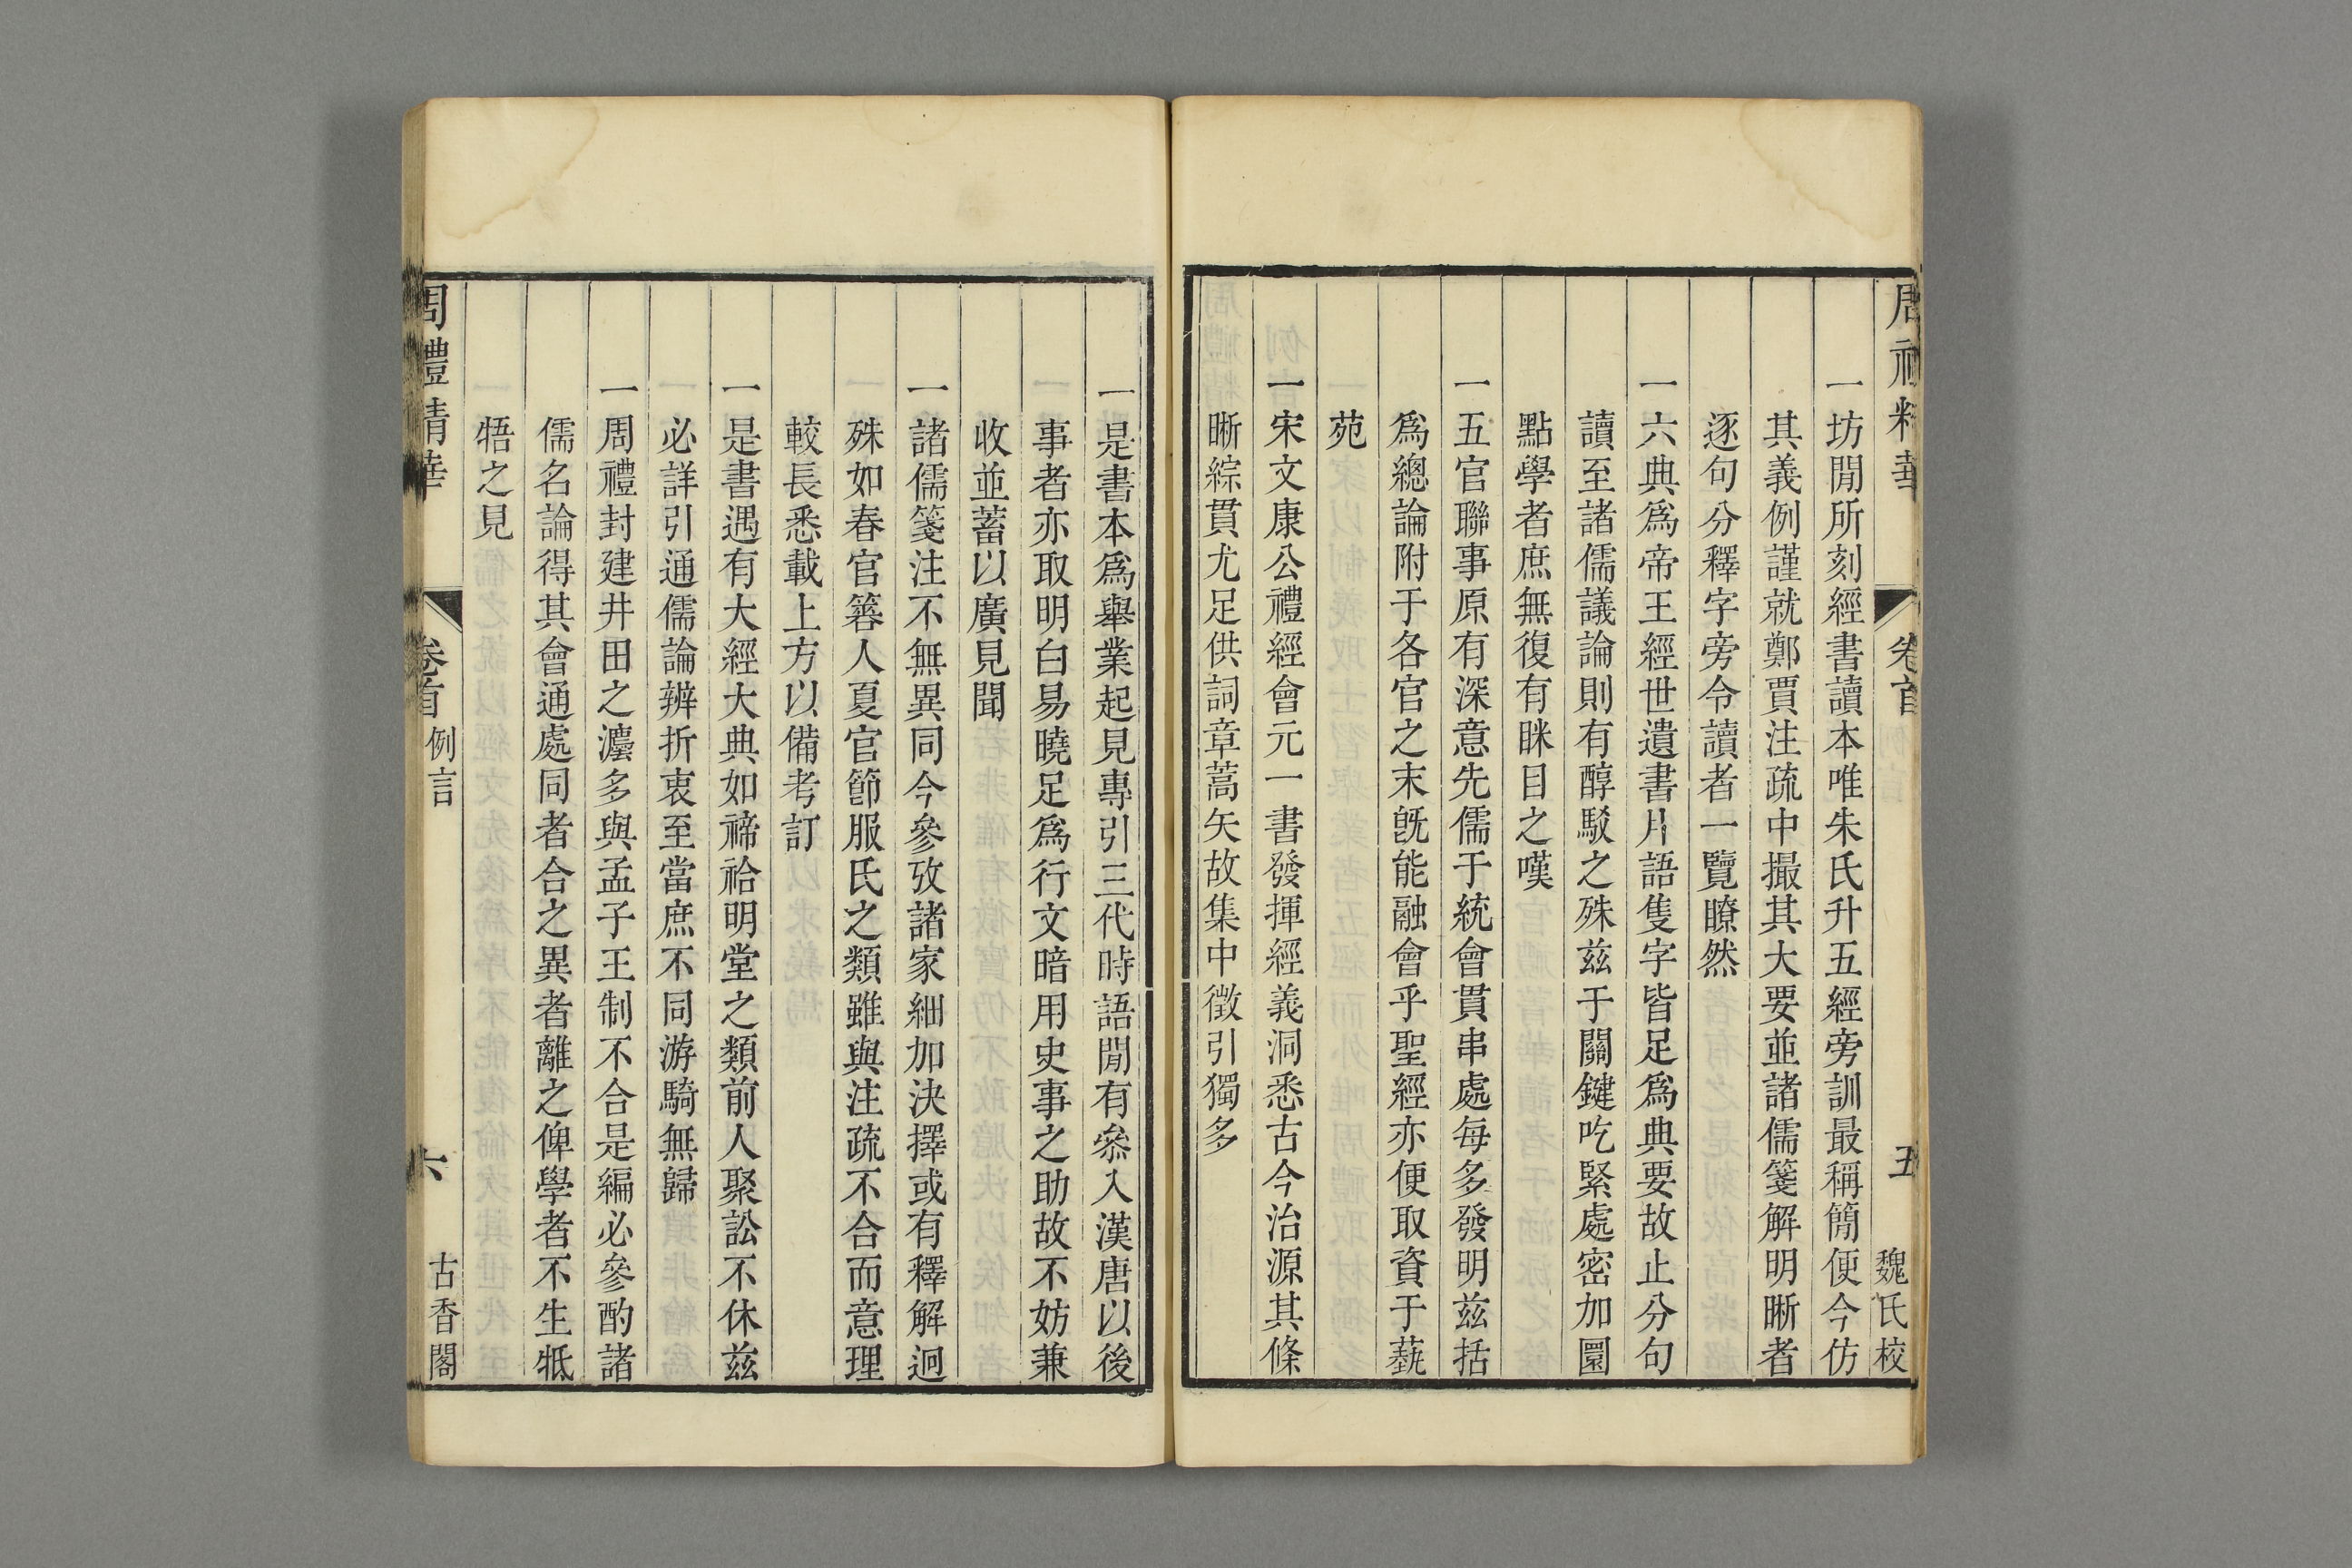 周禮精華
卷首
五
魏氏校
一坊閒所刻經書讀本唯朱氏升五經旁訓最稱簡便今仿
其義例謹就鄭賈注疏中撮其大要並諸儒箋解明晰者
逐句分釋字旁令讀者一覽瞭然
一六典爲帝王經世遺書片語隻字皆足爲典要故止分句
讀至諸儒議論則有醇駁之殊茲于關鍵吃緊處密加圈
點學者庶無復有眯目之嘆
一五官聯事原有深意先儒于統會貫串處每多發明茲括
爲總論附于各官之末旣能融會乎聖經亦便取資于蓺
苑
一宋文康公禮經會元一書發揮經義洞悉古今治源其條
晰綜貫尤足供詞章蒿矢故集中徵引獨多
一是書本爲舉業起見專引三代時語閒有叅入漢唐以後
事者亦取明白易曉足爲行文暗用史事之助故不妨兼
收並蓄以廣見聞
一諸儒箋注不無異同今參攷諸家細加決擇或有釋解迥
殊如春官簭人夏官節服氏之類雖與注疏不合而意理
較長悉載上方以備考訂
一是書遇有大經大典如禘祫明堂之類前人聚訟不休茲
必詳引通儒論辨折衷至當庶不同游騎無歸
一周禮封建井田之灋多與孟子王制不合是編必參酌諸
儒名論得其會通處同者合之異者離之俾學者不生牴
牾之見
周禮精華
卷首
例言
六
古香閣